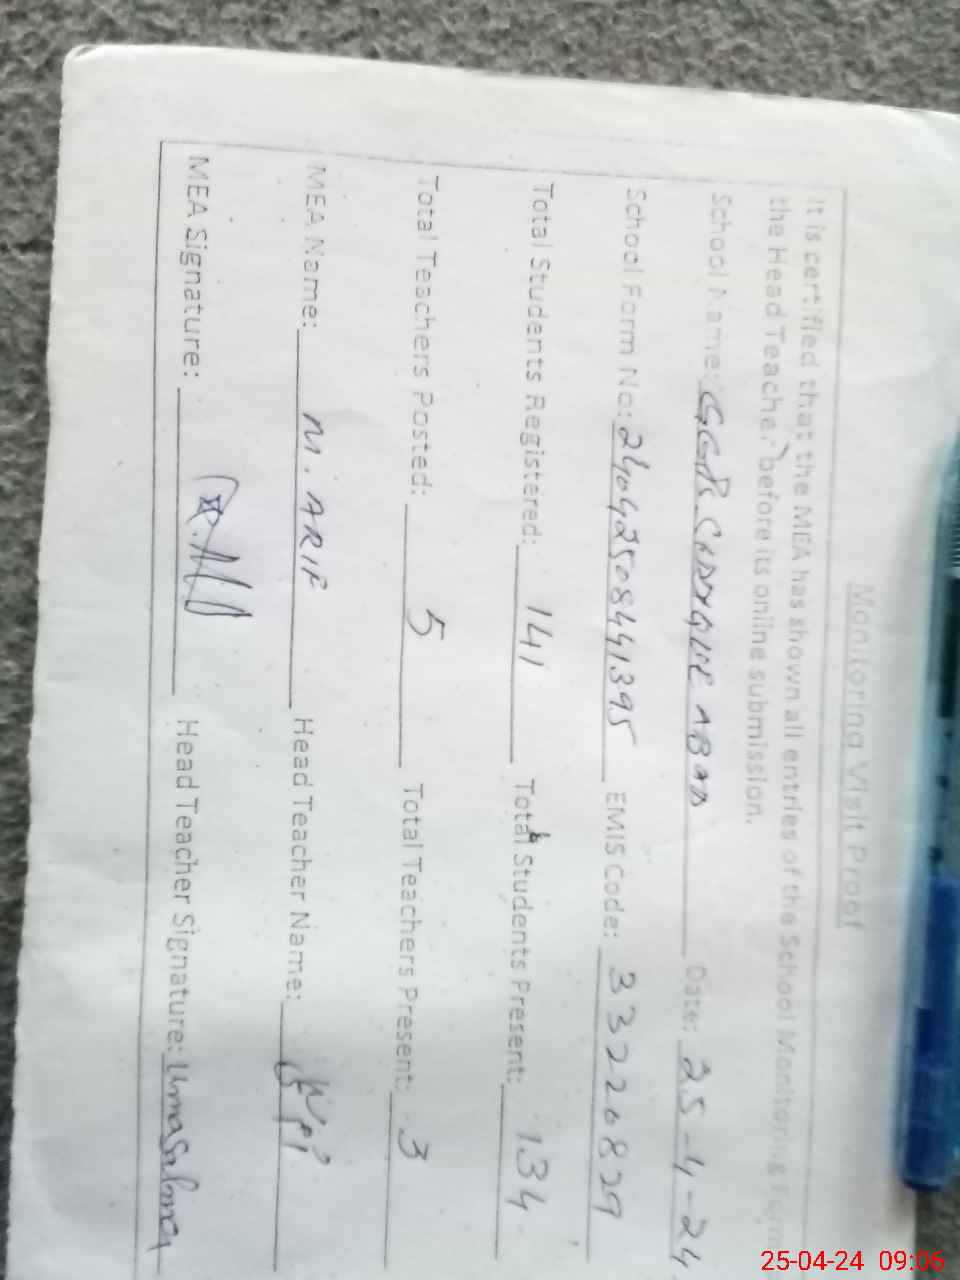 Monitoring Visit Proof
It is certified that the MEA has shown all entries of the School Monitoring Form
the Head Teacher before its online submission.
School Name: Date: 25-4-24
School Form No: 24042508441395 EMIS Code: 33220829
Total Students Registered: 141 Total Students Present: 134
Total Teachers Posted: 5 Total Teachers Present: 3
MEA Name: M. ARIF Head Teacher Name: ام سلمیٰ
MEA Signature: Head Teacher Signature: Umasalma
25-04-24 09:06